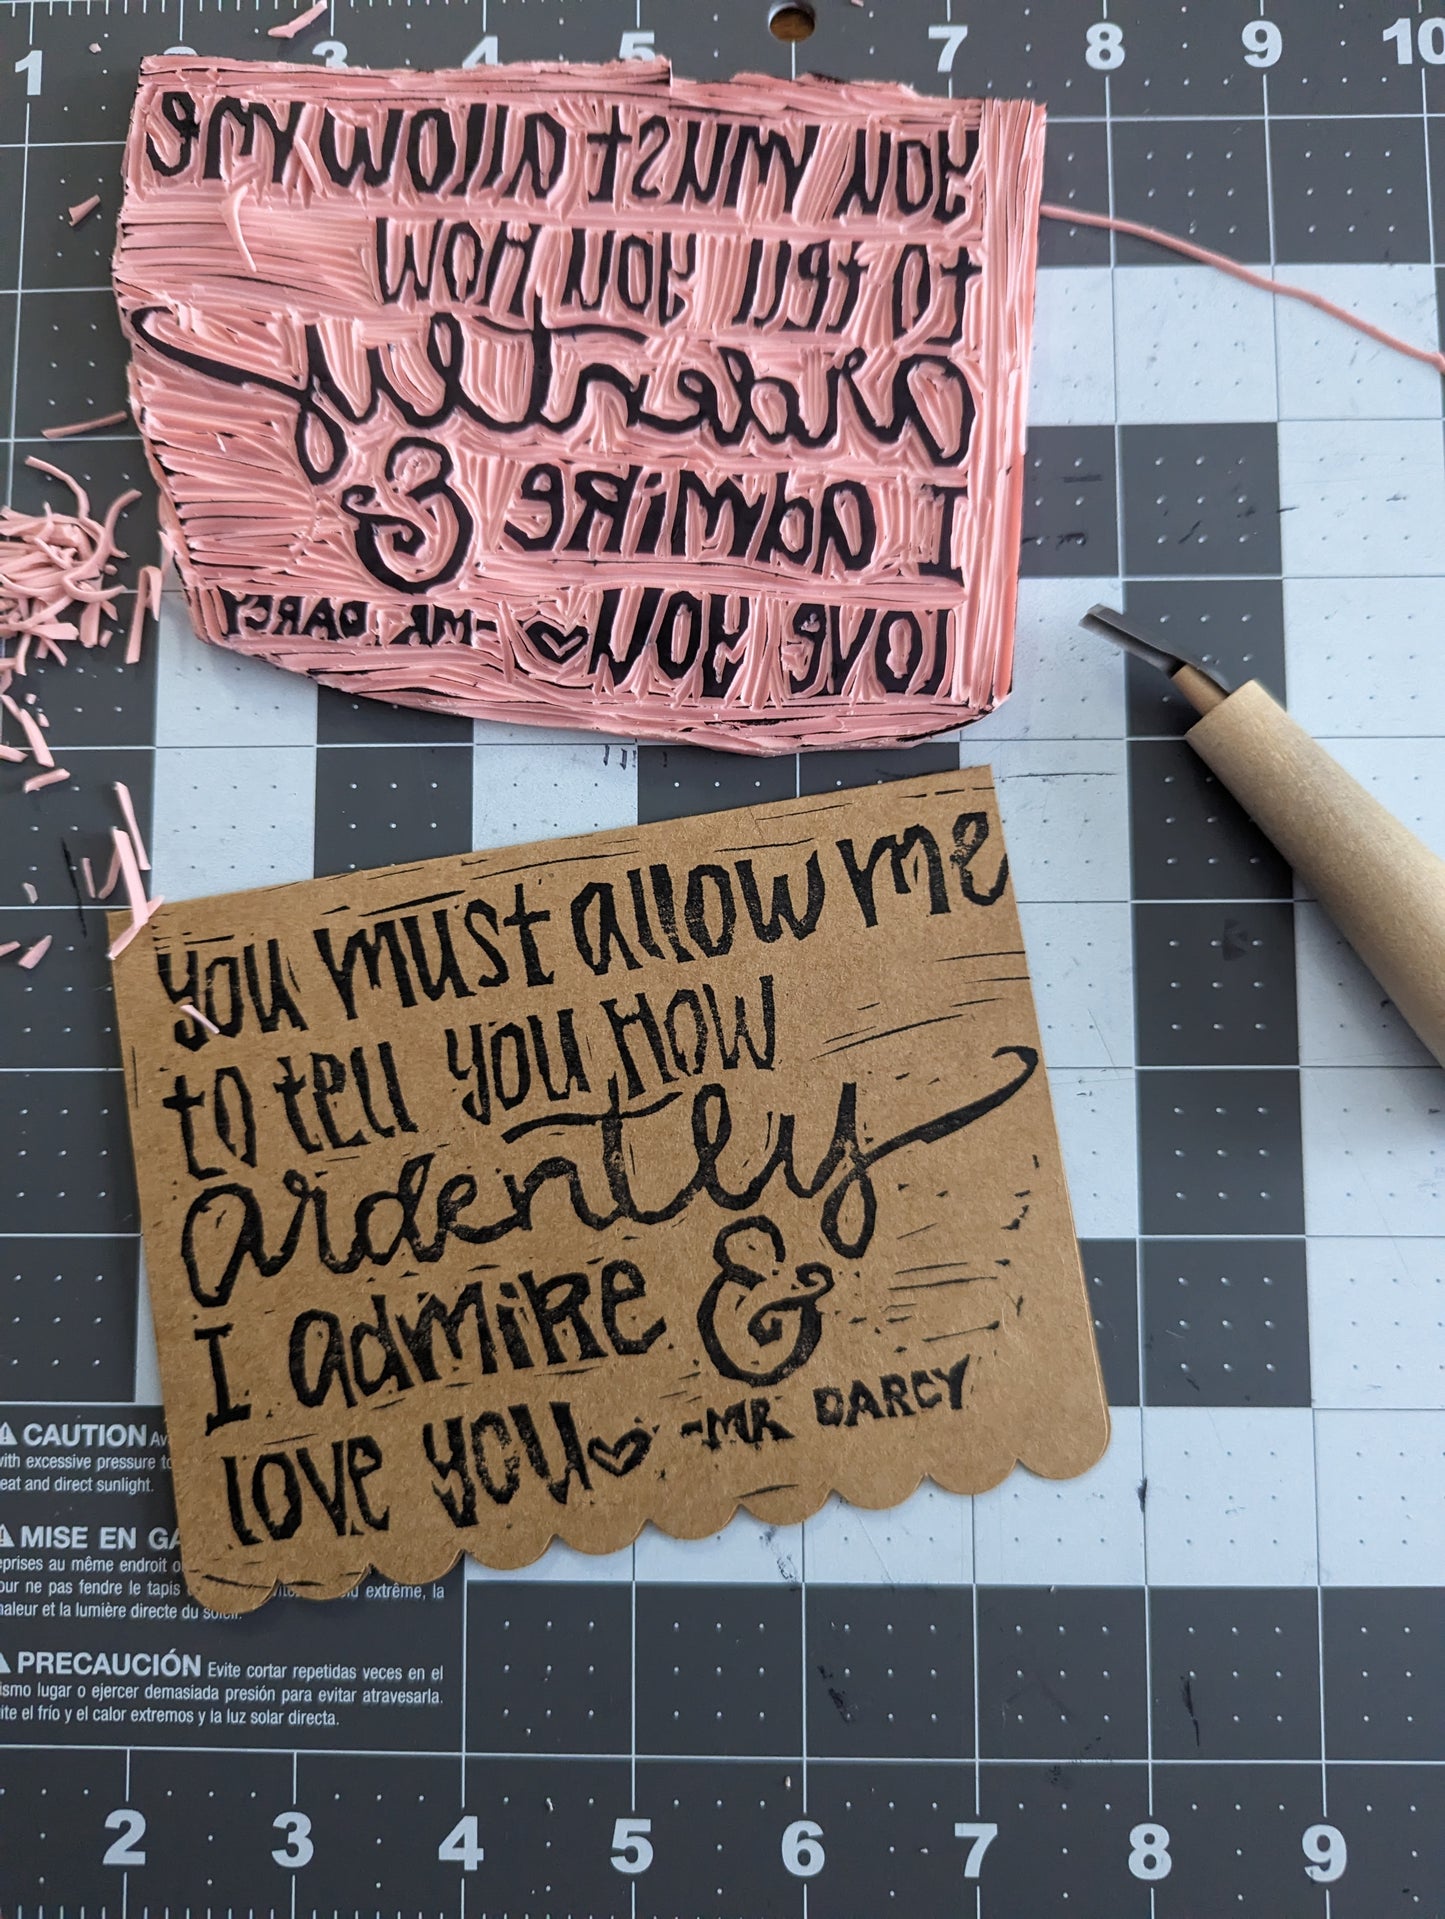 1 2 3 4 5 7 8 9 10
you must allow me
to tell you HOW
ardently
I admiRe &
love you♡ -MR DARCY
you must allow me
to tell you HOW
ardently
I admiRe &
love you♡ -MR DARCY
⚠ CAUTION
with excessive pressure
eat and direct sunlight.
⚠ MISE EN
eprises au même endroit
our ne pas fendre le tapis extrême, la
haleur et la lumière directe du soleil.
⚠ PRECAUCIÓN Evite cortar repetidas veces en el
ismo lugar o ejercer demasiada presión para evitar atravesarla.
ite el frío y el calor extremos y la luz solar directa.
2 3 4 5 6 7 8 9